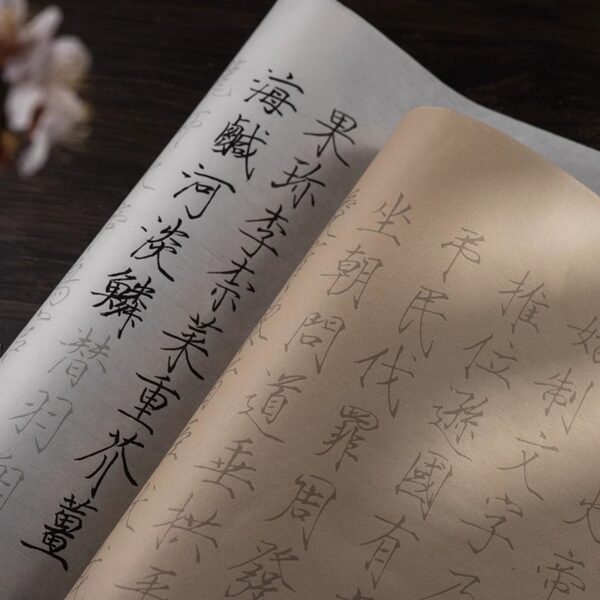 火帝
始制文字乃
推位遜國有
弔民伐罪周發
坐朝問道垂拱平
果珍李柰菜重芥薑
海鹹河淡鱗潛羽翔